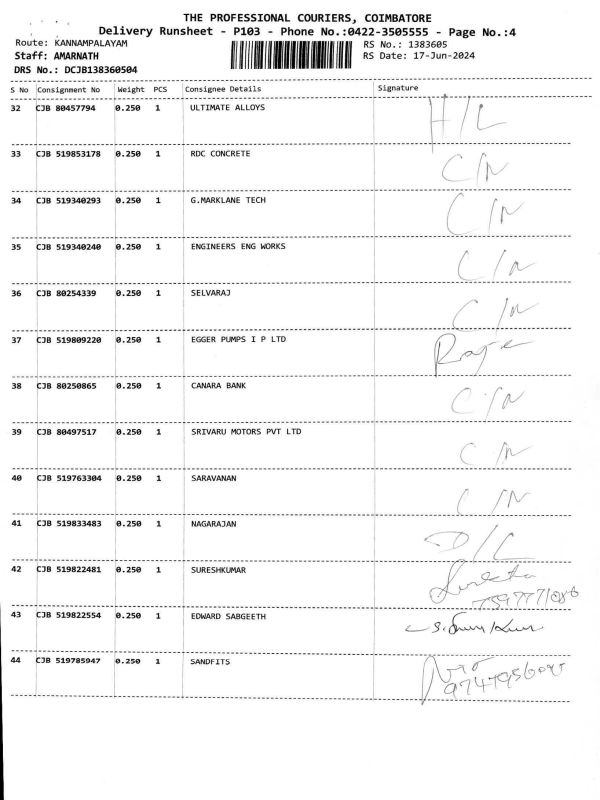 THE PROFESSIONAL COURIERS, COIMBATORE
Delivery Runsheet - P103 - Phone No.:0422-3505555 - Page No.:4
Route: KANNAMPALAYAM RS No.: 1383605
Staff: AMARNATH RS Date: 17-Jun-2024
DRS No.: DCJB138360504
S No Consignment No Weight PCS Consignee Details Signature
32 CJB 80457794 0.250 1 ULTIMATE ALLOYS H/L
33 CJB 519853178 0.250 1 RDC CONCRETE C/N
34 CJB 519340293 0.250 1 G.MARKLANE TECH C/N
35 CJB 519340240 0.250 1 ENGINEERS ENG WORKS C/N
36 CJB 80254339 0.250 1 SELVARAJ C/N
37 CJB 519809220 0.250 1 EGGER PUMPS I P LTD
38 CJB 80250865 0.250 1 CANARA BANK C/N
39 CJB 80497517 0.250 1 SRIVARU MOTORS PVT LTD C/N
40 CJB 519763304 0.250 1 SARAVANAN C/N
41 CJB 519833483 0.250 1 NAGARAJAN D/L
42 CJB 519822481 0.250 1 SURESHKUMAR
43 CJB 519822554 0.250 1 EDWARD SABGEETH
44 CJB 519785947 0.250 1 SANDFITS